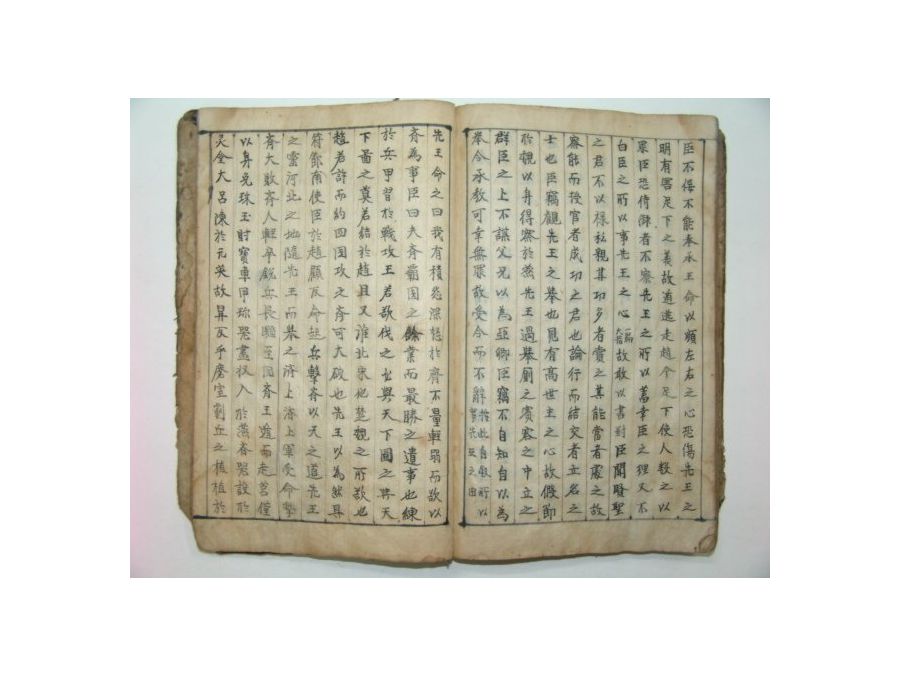 臣不侫不能奉承王命以順左右之心恐傷先王之
明有害足下之義故遁逃走趙今足下使人數之以
罪臣恐侍御者不察先王之所以畜幸臣之理又不
白臣之所以事先王之心一篇大旨故敢以書對臣聞賢聖
之君不以祿私親其功多者賞之其能當者處之故
察能而授官者成功之君也論行而結交者立名之
士也臣竊觀先王之舉也見有高世主之心故假節
於魏以身得察於燕先王過舉厠之賓客之中立之
群臣之上不謀父兄以為亞卿臣竊不自知自以為
奉令承教可幸無罪故受令而不辭於此自叙所以事先王之由
先王命之曰我有積怨深怒於齊不量輕弱而欲以
齐為事臣曰夫齐霸国之餘業而最勝之遺事也練
於兵甲習於戰攻王若欲伐之必與天下圖之與天
下圖之莫若結於趙且又淮北宋地楚魏之所欲也
趙若許而約四国攻之齐可大破也先王以為然具
符節南使臣於趙顧反命起兵擊齐以天之道先王
之靈河北之地隨先王而舉之濟上濟上軍受命擊
齐大敗齐人輕卒銳兵長驅至国齐王遁而走莒僅
以身免珠玉財寶車甲珍器盡収入於燕齐器設於
灵台大呂陳於元英故鼎反乎磿室薊丘之植植於